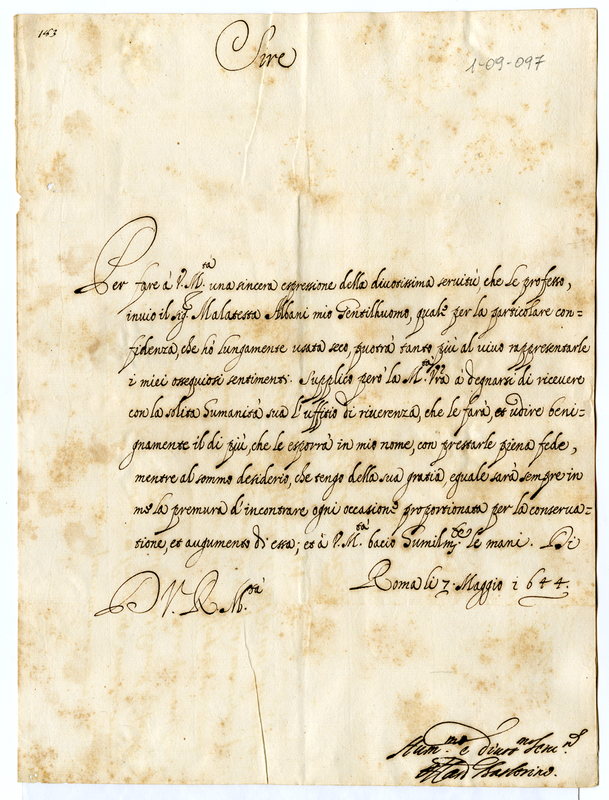 153
Sire
1-09-097
Per fare à V. M.tà una sincera espressione della divotissima servitù che le professo,
invio il Sig.r Malatesta Albani mio Gentilhuomo, quale per la particolare con=
fidenza, che hò lungamente usata seco, potrà tanto più al vivo rappresentarle
i miei ossequiosi sentimenti. Supplico però la M.tà V.ra à degnarsi di ricevere
con la solita humanità sua l'uffitio di riverenza, che le farà, et udire beni=
gnamente il di più, che le esporrà in mio nome, con prestarle piena fede,
mentre al sommo desiderio, che tengo della sua gratia, eguale sarà sempre in
me la premura d'incontrare ogni occasione proportionata per la conserva=
tione, et augumento di essa; et à V. M.tà bacio humilm.te le mani. Di
Roma li 7. Maggio 1644.
D V. R. M.tà
Hum.mo e divot.mo Ser.re
Il Card. Barberino.